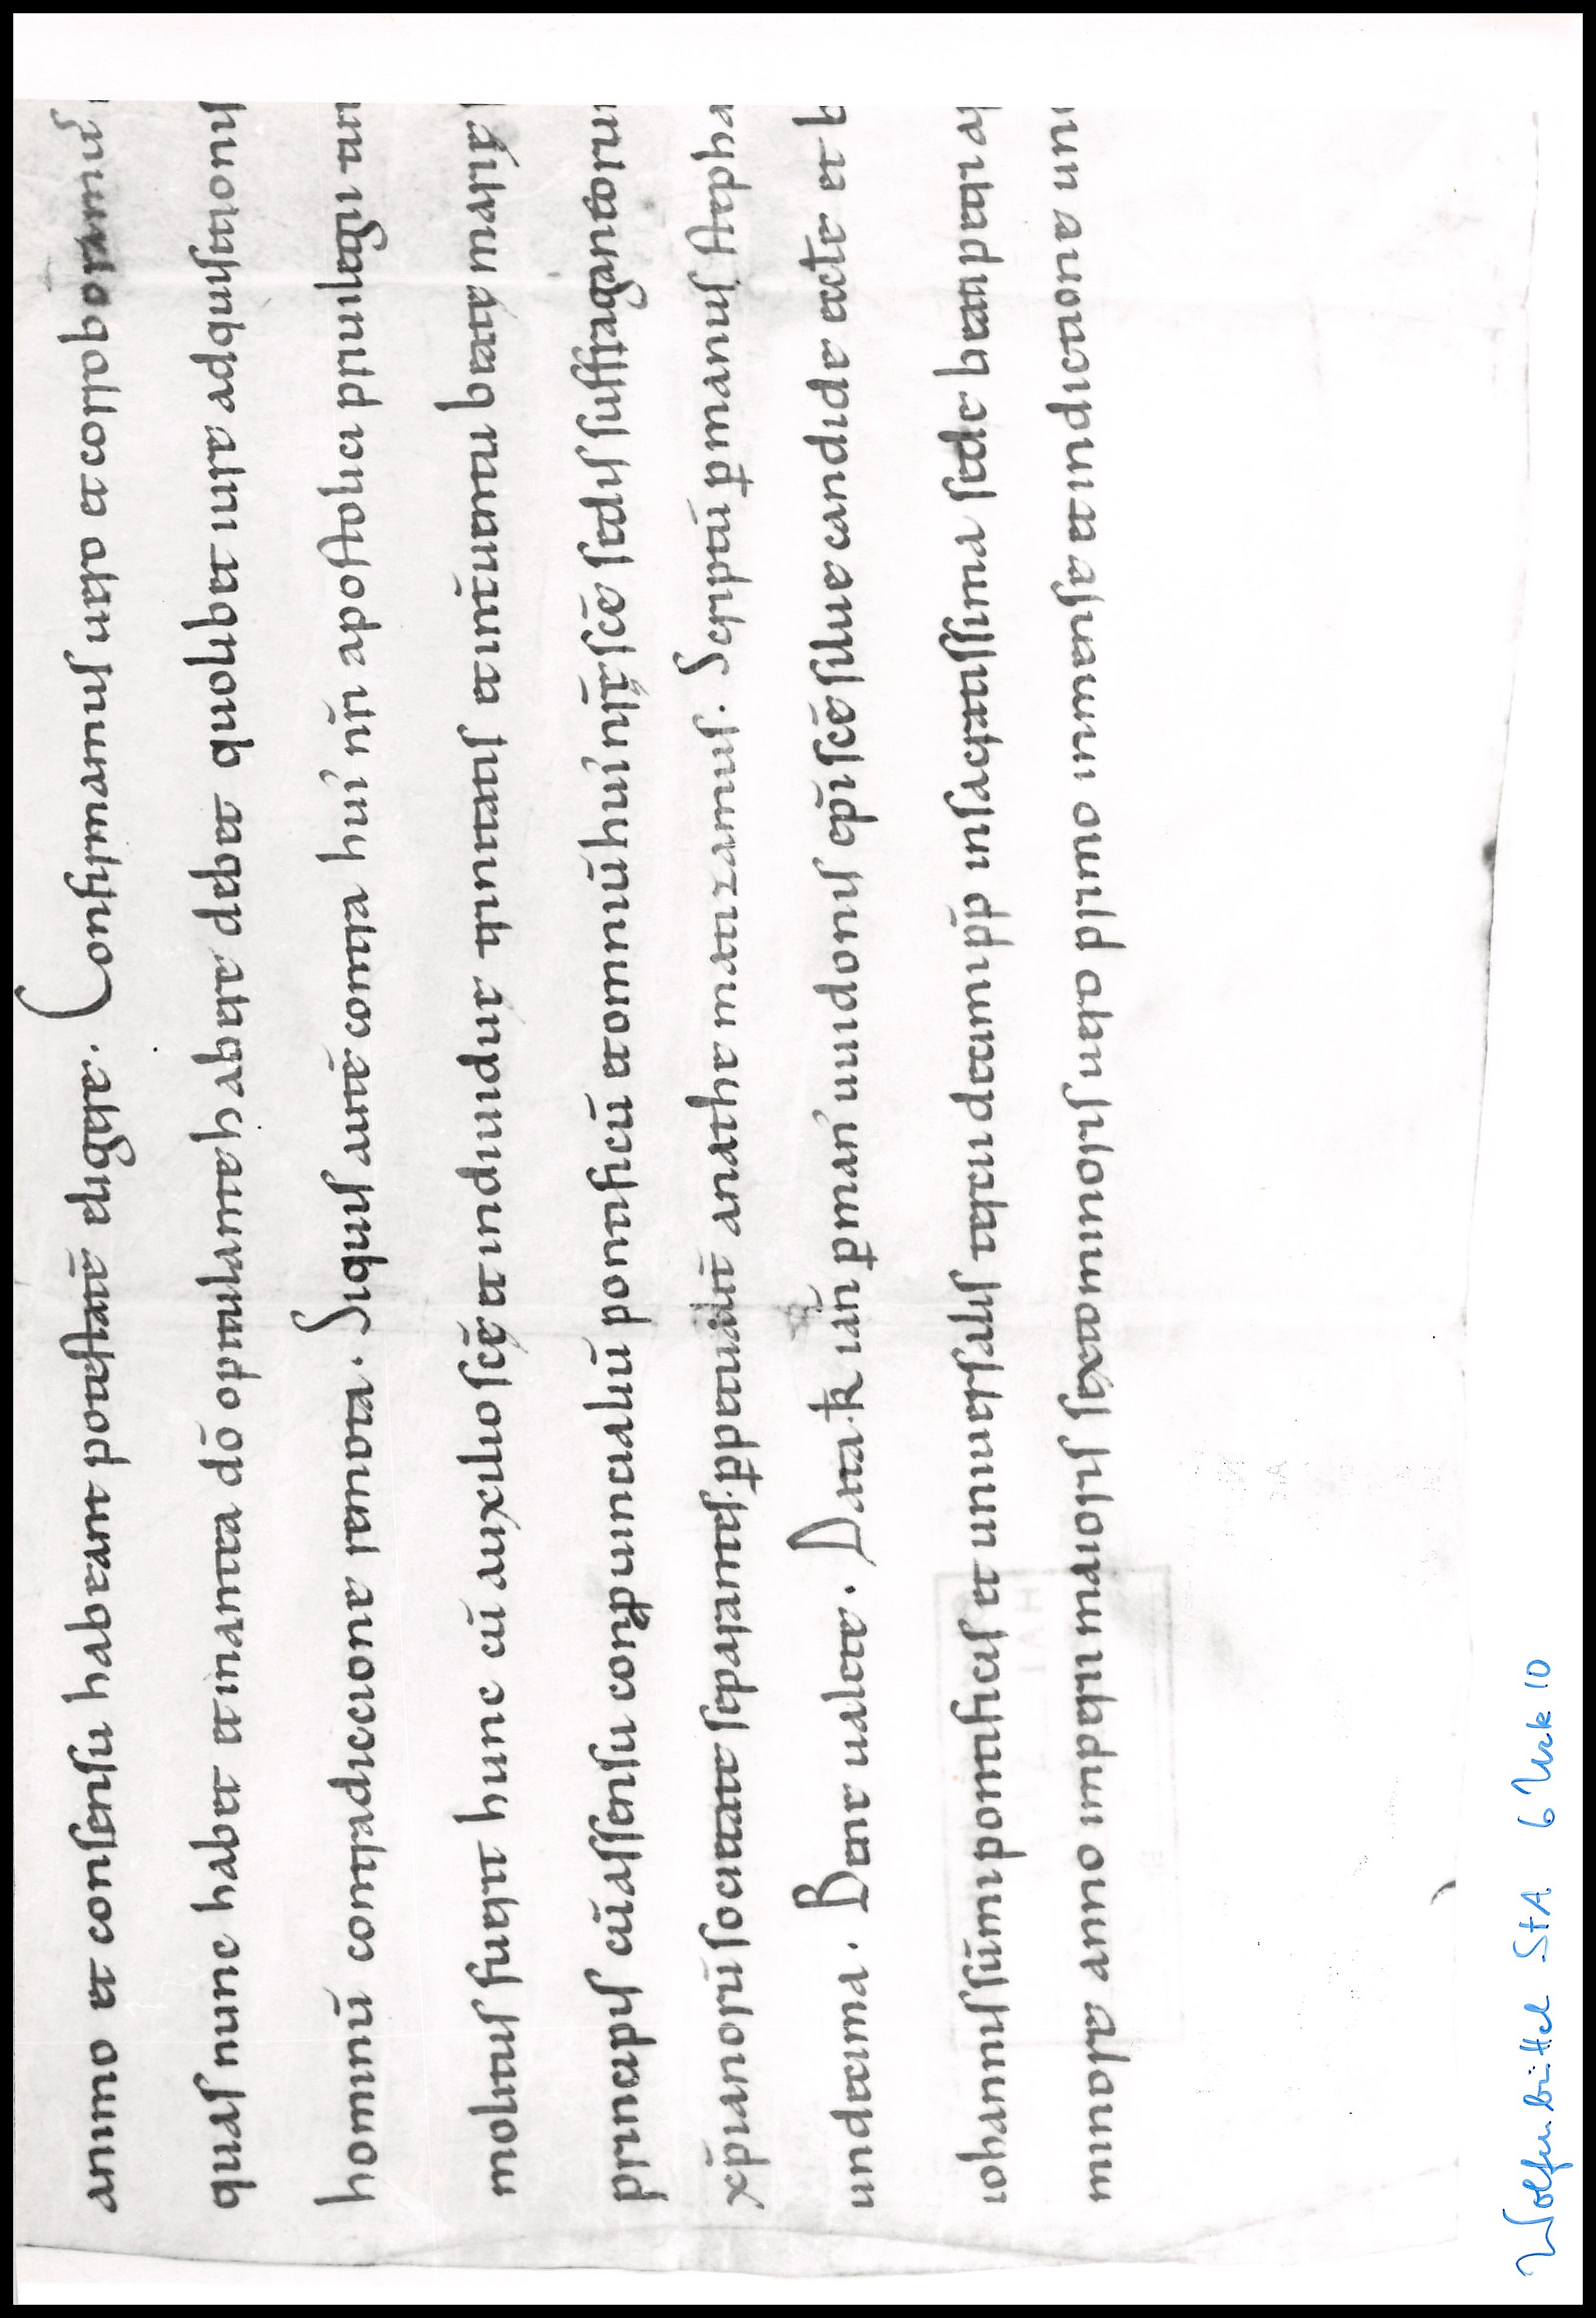 animo et consensu habeant potestatē eligere. Confirmamus uero et corroboramus
quas nunc habet et inantea dō opitulante habere debet quolibet iure adquisitionis
hominū contradictione remota. Siquis autē contra hui' nr̄i apostolici priuilegii
molitus fuerit hunc cū auxilio scę̄ et indiuiduę trinitatis et uirtutū beatę marię
principis cū assensu conprouincialiū pontificū et omniū hui' nr̄ę scę̄ sedis suffraganeorum
xp̄ianorū societate separamus. ꝑpetualit̄ anathematizamus. Scriptū ꝑ manus steph
undecima. Bene ualete. Data k ian̄ ꝑ man' uuidonis ep̄i scę̄ silue candide
iohannis sūmi pontificis et uniuersalis tercii decimi pp̄ in sacratissima sede beati petri
minoris anno imperii maioris sexto minoris uero primo in mense et indictione
Wolfenbüttel StA 6 Urk 10